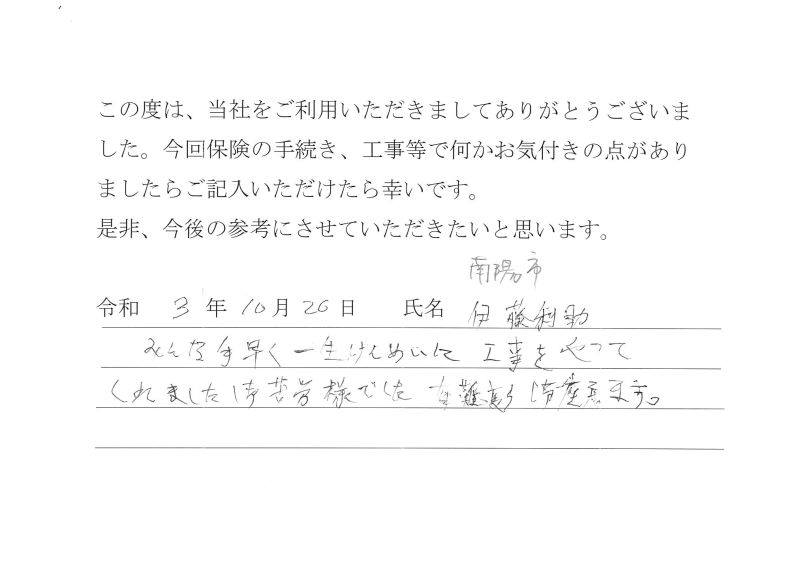 この度は、当社をご利用いただきましてありがとうございま
した。今回保険の手続き、工事等で何かお気付きの点があり
ましたらご記入いただけたら幸いです。
是非、今後の参考にさせていただきたいと思います。
南陽市
令和 3 年 10 月 26 日 氏名 伊藤利助
みんな手早く一生けんめいに 工事をやって
くれました 御苦労様でした 有難う 御座居ます。